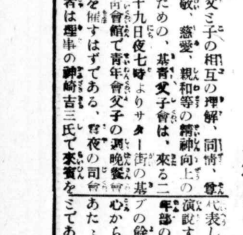 文と子の相互の理解、同情、尊
敬、慈愛、親和等の精神向上の
ための、基青父子會は、來る二
十九日夜七時よりサター街の基
青會館で青年會父子の調晩餐會
を催すはずである、當夜の司會
者は理事の神崎吉三氏で來賓を
代表し
演說す
年部の
ブの餘
心から
あたよ
とであ